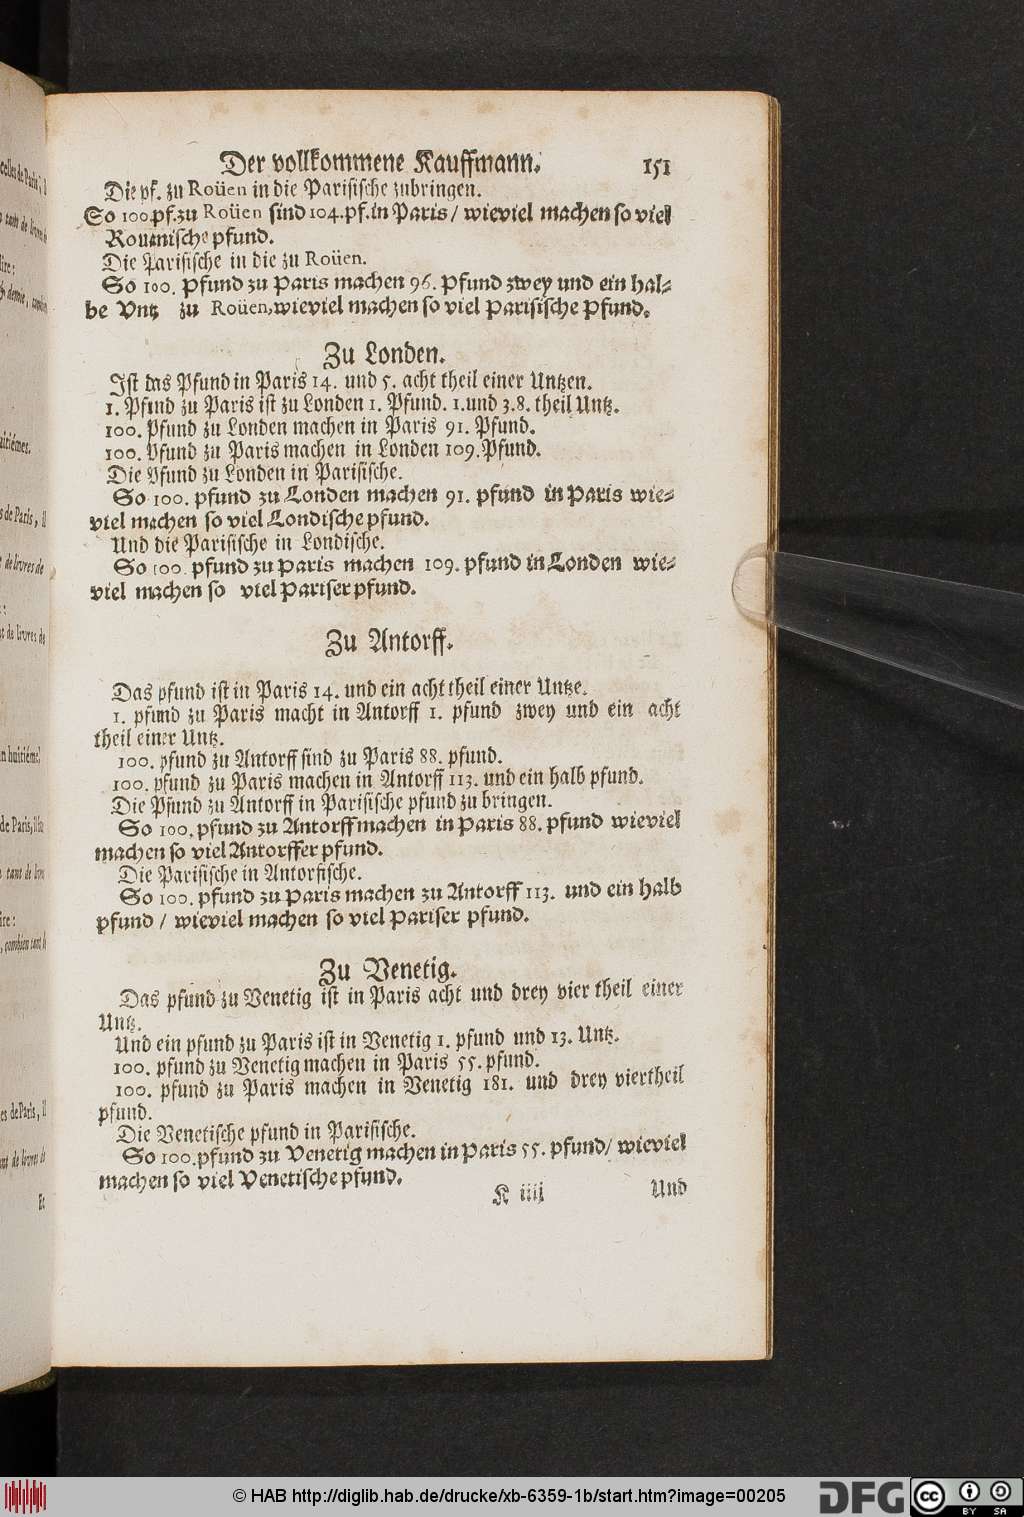 Der vollkommene Kauffmann. 151
Die pf. zu Roüen in die Parisische zubringen.
So 100. pf. zu Roüen sind 104. pf. in Paris / wieviel machen so viel
Rouanische pfund.
Die Parisische in die zu Roüen.
So 100. Pfund zu Paris machen 96. Pfund zwey und ein hal-
be Untz zu Roüen, wieviel machen so viel Parisische Pfund.
Zu Londen.
Ist das Pfund in Paris 14. und 5. acht theil einer Untzen.
1. Pfund zu Paris ist zu Londen 1. Pfund. 1. und 3.8. theil Untz.
100. Pfund zu Londen machen in Paris 91. Pfund.
100. Pfund zu Paris machen in Londen 109. Pfund.
Die Pfund zu Londen in Parisische.
So 100. pfund zu Londen machen 91. pfund in Paris wie-
viel machen so viel Londische pfund.
Und die Parisische in Londische.
So 100. pfund zu Paris machen 109. pfund in Londen wie-
viel machen so viel Pariser pfund.
Zu Antorff.
Das pfund ist in Paris 14. und ein acht theil einer Untze.
1. pfund zu Paris macht in Antorff 1. pfund zwey und ein acht
theil einer Untz.
100. pfund zu Antorff sind zu Paris 88. pfund.
100. pfund zu Paris machen in Antorff 113. und ein halb pfund.
Die Pfund zu Antorff in Parisische pfund zu bringen.
So 100. pfund zu Antorff machen in Paris 88. pfund wieviel
machen so viel Antorffer pfund.
Die Parisische in Antorfische.
So 100. pfund zu Paris machen zu Antorff 113. und ein halb
pfund / wieviel machen so viel Pariser pfund.
Zu Venetig.
Das pfund zu Venetig ist in Paris acht und drey vier theil einer
Untz.
Und ein pfund zu Paris ist in Venetig 1. pfund und 13. Untz.
100. pfund zu Venetig machen in Paris 55. pfund.
100. pfund zu Paris machen in Venetig 181. und drey viertheil
pfund.
Die Venetische pfund in Parisische.
So 100. pfund zu Venetig machen in Paris 55. pfund / wieviel
machen so viel Venetische pfund.
K iiij Und
© HAB http://diglib.hab.de/drucke/xb-6359-1b/start.htm?image=00205
DFG
cc BY SA